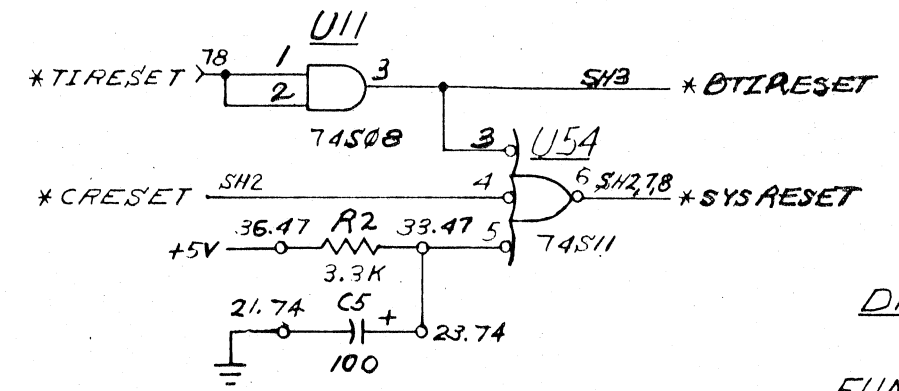 U11
*TIRESET 78 1 3 SH3 *BTIRESET
2
74SØ8
3 U54
*CRESET SH2 4 6 SH2,7,8 *SYSRESET
36.47 R2 33.47 5 74S11
+5V
3.3K
21.74 C5 + 23.74
100